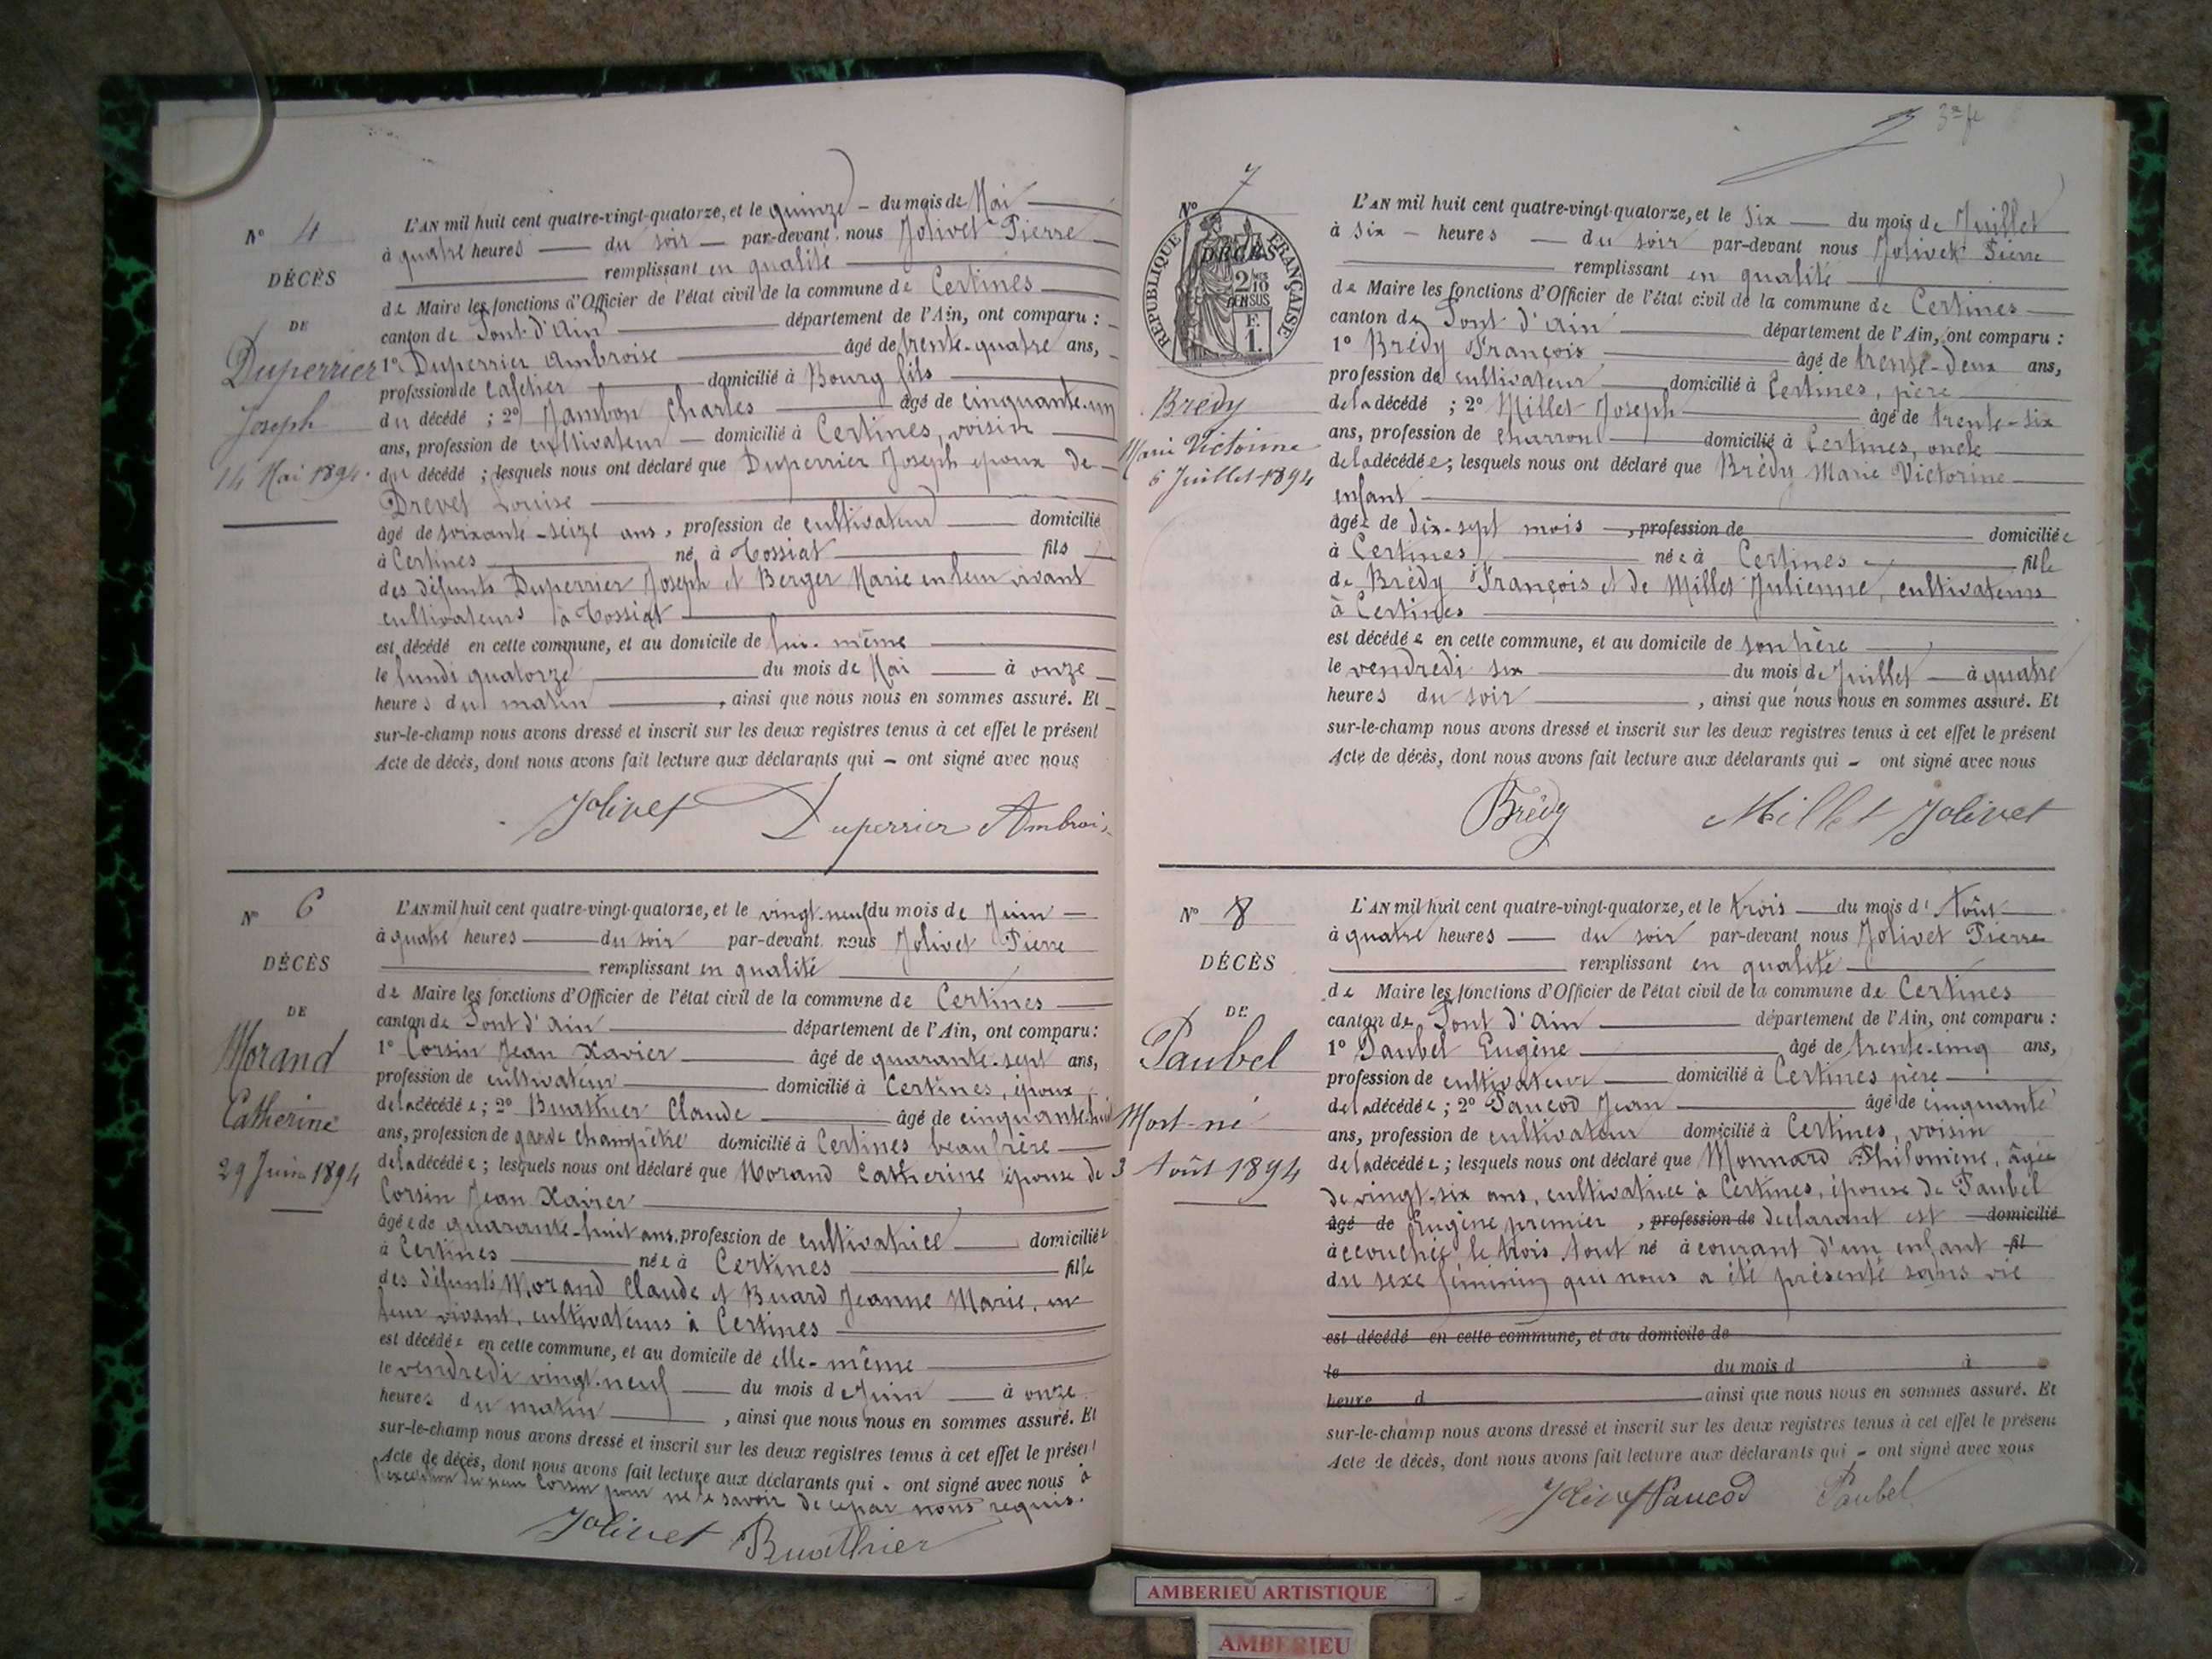 N° 4
DÉCÈS
DE
Duperrier
Joseph
14 Mai 1894.
L'AN mil huit cent quatre-vingt-quatorze, et le quinze — du mois de Mai
à quatre heures — du soir — par-devant nous Jolivet Pierre
remplissant en qualité
de Maire les fonctions d'Officier de l'état civil de la commune de Certines
canton de Pont d'Ain département de l'Ain, ont comparu :
1° Duperrier Ambroise âgé de trente-quatre ans,
profession de cafetier domicilié à Bourg fils
du décédé ; 2° Jambon Charles âgé de cinquante-un
ans, profession de cultivateur — domicilié à Certines, voisin
du décédé ; lesquels nous ont déclaré que Duperrier Joseph époux de
Drevet Louise
âgé de soixante-seize ans, profession de cultivateur domicilié
à Certines né à Tossiat fils
des défunts Duperrier Joseph et Berger Marie en leur vivant
cultivateurs à Tossiat
est décédé en cette commune, et au domicile de lui-même
le lundi quatorze du mois de Mai à onze
heures du matin , ainsi que nous nous en sommes assuré. Et
sur-le-champ nous avons dressé et inscrit sur les deux registres tenus à cet effet le présent
Acte de décès, dont nous avons fait lecture aux déclarants qui — ont signé avec nous
Jolivet Duperrier Ambrois
N° 6
DÉCÈS
DE
Morand
Catherine
29 Juin 1894
L'AN mil huit cent quatre-vingt-quatorze, et le vingt-neuf du mois de Juin —
à quatre heures — du soir par-devant nous Jolivet Pierre
remplissant en qualité
de Maire les fonctions d'Officier de l'état civil de la commune de Certines
canton de Pont d'Ain département de l'Ain, ont comparu :
1° Corsin Jean Xavier âgé de quarante-sept ans,
profession de cultivateur domicilié à Certines, époux
de la décédée ; 2° Buathier Claude âgé de cinquante-huit
ans, profession de garde champêtre domicilié à Certines beau frère
de la décédée ; lesquels nous ont déclaré que Morand Catherine épouse de
Corsin Jean Xavier
âgée de quarante-huit ans, profession de cultivatrice domiciliée
à Certines née à Certines fille
des défunts Morand Claude et Buard Jeanne Marie, en
leur vivant, cultivateurs à Certines
est décédée en cette commune, et au domicile de elle-même
le vendredi vingt-neuf du mois de Juin à onze
heures du matin , ainsi que nous nous en sommes assuré. Et
sur-le-champ nous avons dressé et inscrit sur les deux registres tenus à cet effet le présent
Acte de décès, dont nous avons fait lecture aux déclarants qui - ont signé avec nous à
l'exception du sieur Corsin pour ne le savoir de ce par nous requis.
Jolivet Buathier
3e f
N° 7
REPUBLIQUE FRANÇAISE
DÉCÈS
2/10 EN SUS
F. 1.
Brédy
Marie Victorine
6 Juillet 1894
L'AN mil huit cent quatre-vingt-quatorze, et le six — du mois de Juillet
à six — heures — du soir par-devant nous Jolivet Pierre
remplissant en qualité
de Maire les fonctions d'Officier de l'état civil de la commune de Certines
canton de Pont d'Ain département de l'Ain, ont comparu :
1° Brédy François âgé de trente-deux ans,
profession de cultivateur domicilié à Certines, père
de la décédé ; 2° Millet Joseph âgé de trente-six
ans, profession de charron domicilié à Certines, oncle
de la décédée ; lesquels nous ont déclaré que Brédy Marie Victorine
enfant
âgée de dix-sept mois , profession de domiciliée
à Certines née à Certines fille
de Brédy François et de Millet Julienne, cultivateurs
à Certines
est décédée en cette commune, et au domicile de son père
le vendredi six du mois de Juillet — à quatre
heures du soir , ainsi que nous nous en sommes assuré. Et
sur-le-champ nous avons dressé et inscrit sur les deux registres tenus à cet effet le présent
Acte de décès, dont nous avons fait lecture aux déclarants qui — ont signé avec nous
Brédy Millet Jolivet
N° 8
DÉCÈS
DE
Paubel
Mort-né
3 Août 1894
L'AN mil huit cent quatre-vingt-quatorze, et le trois — du mois d'Août
à quatre heures — du soir par-devant nous Jolivet Pierre
remplissant en qualité
de Maire les fonctions d'Officier de l'état civil de la commune de Certines
canton de Pont d'Ain département de l'Ain, ont comparu :
1° Paubel Eugène âgé de trente-cinq ans,
profession de cultivateur domicilié à Certines père
de la décédée ; 2° Paucod Jean âgé de cinquante
ans, profession de cultivateur domicilié à Certines, voisin
de la décédée ; lesquels nous ont déclaré que Monnard Philomène, âgée
de vingt-six ans, cultivatrice à Certines, épouse de Paubel
âgé de Eugène premier , profession de déclarant est domicilié
accouchée le trois Aout né à courant d'un enfant fil
du sexe féminin qui nous a été présenté sans vie
est décédé en cette commune, et au domicile de
le du mois d à
heure d ainsi que nous nous en sommes assuré. Et
sur-le-champ nous avons dressé et inscrit sur les deux registres tenus à cet effet le présent
Acte de décès, dont nous avons fait lecture aux déclarants qui - ont signé avec nous
Jolivet Paucod Paubel
AMBERIEU ARTISTIQUE
AMBERIEU